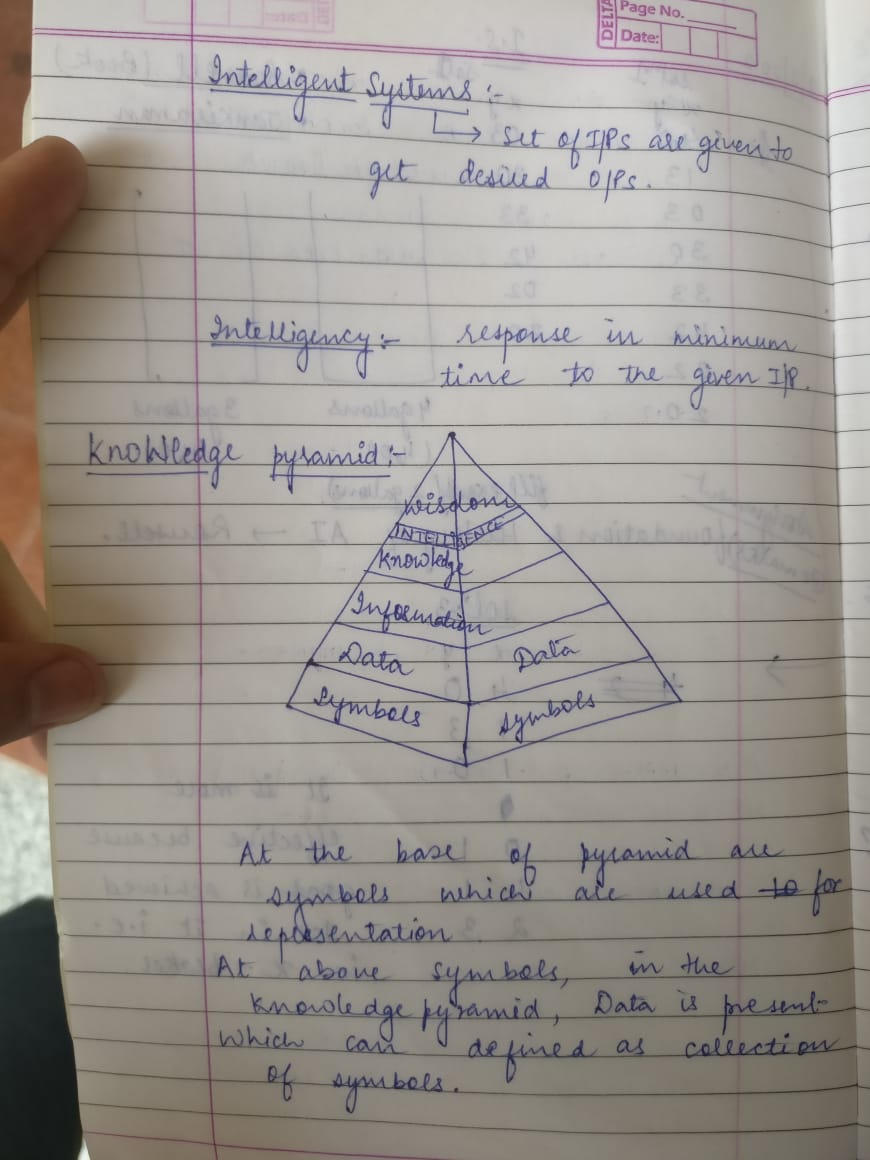 DELTA
Page No.
Date:
Intelligent Systems :-
→ set of I/Ps are given to
get desired O/Ps.
Intelligency :- response in minimum
time to the given I/P.
Knowledge pyramid :-
Wisdom
INTELLIGENCE
Knowledge
Information
Data Data
Symbols Symbols
At the base of pyramid are
symbols which are used to for
representation.
At above symbols, in the
knowledge pyramid, Data is present
which can defined as collection
of symbols.